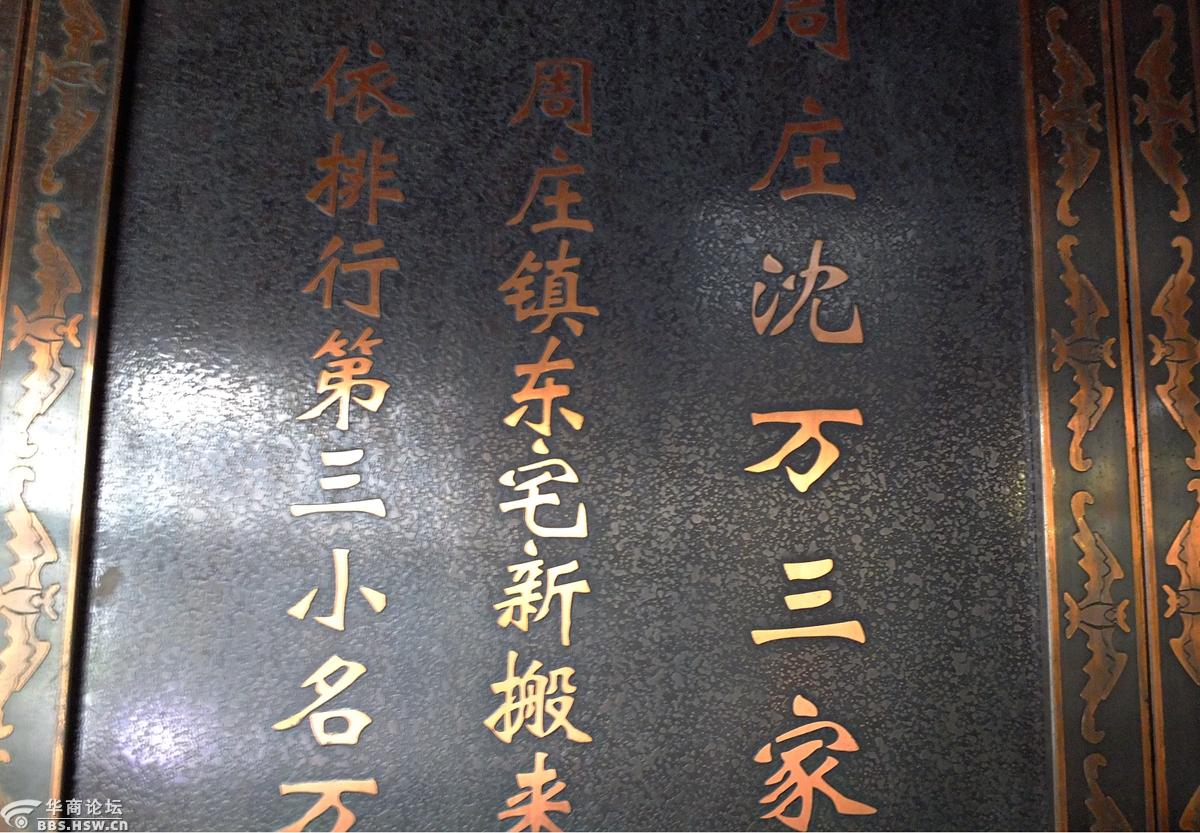 周庄沈万三家
周庄镇东宅新搬来
依排行第三小名万
华商论坛
BBS.HSW.CN